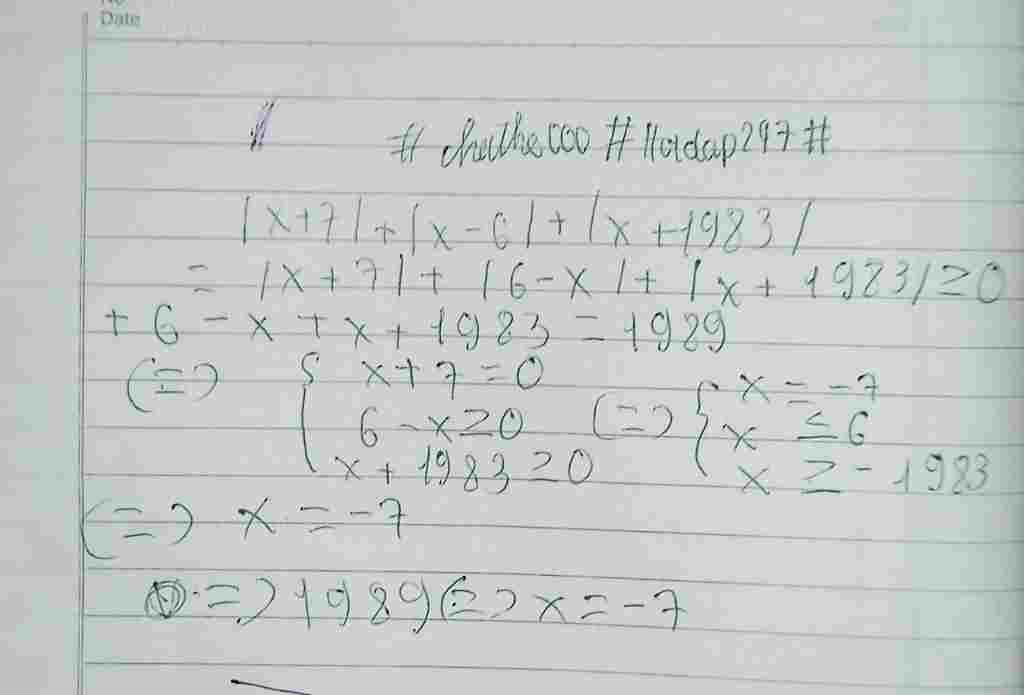 No
Date
# chuthe000 # Hoidap247 #
|x+7| + |x-6| + |x+1983|
= |x+7| + |6-x| + |x+1983| ≥ 0
+ 6 - x + x + 1983 = 1989
(=) { x+7=0
6-x≥0 (=) { x = -7
x ≤ 6
x+1983≥0
x ≥ -1983
(=) x = -7
=) 1989 (=) x = -7